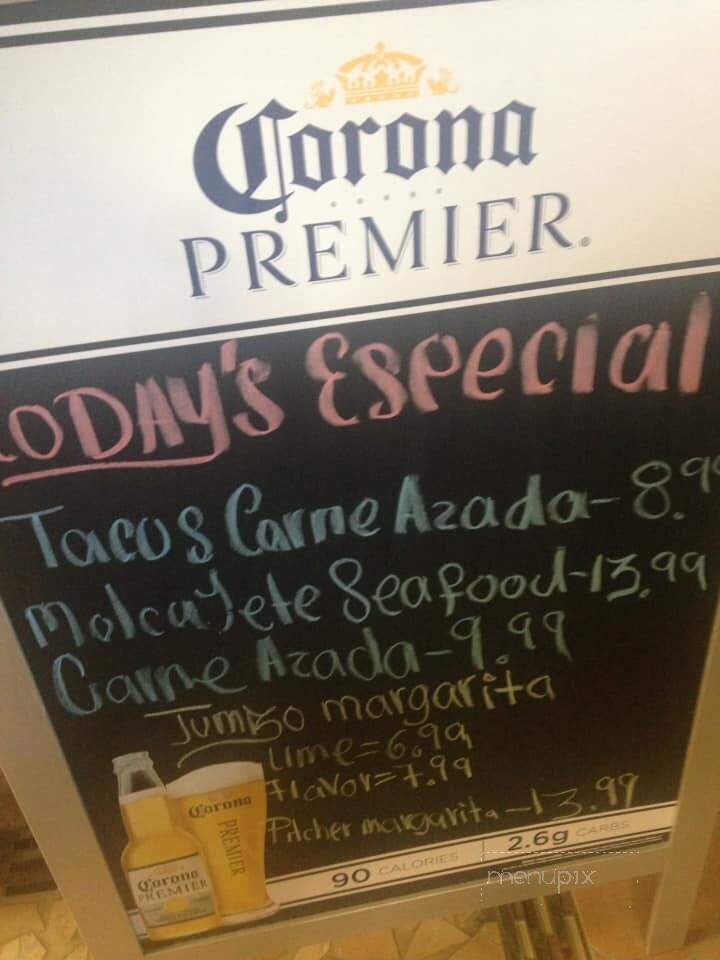 Corona
PREMIER.
TODAY'S Especial
Tacos Carne Azada - 8.99
Molcajete Seafood - 13.99
Carne Azada - 9.99
Jumbo margarita
Lime = 6.99
Flavor = 7.99
Pitcher margarita - 13.99
Corona
PREMIER
Corona
PREMIER
90 CALORIES 2.6g CARBS
menupix